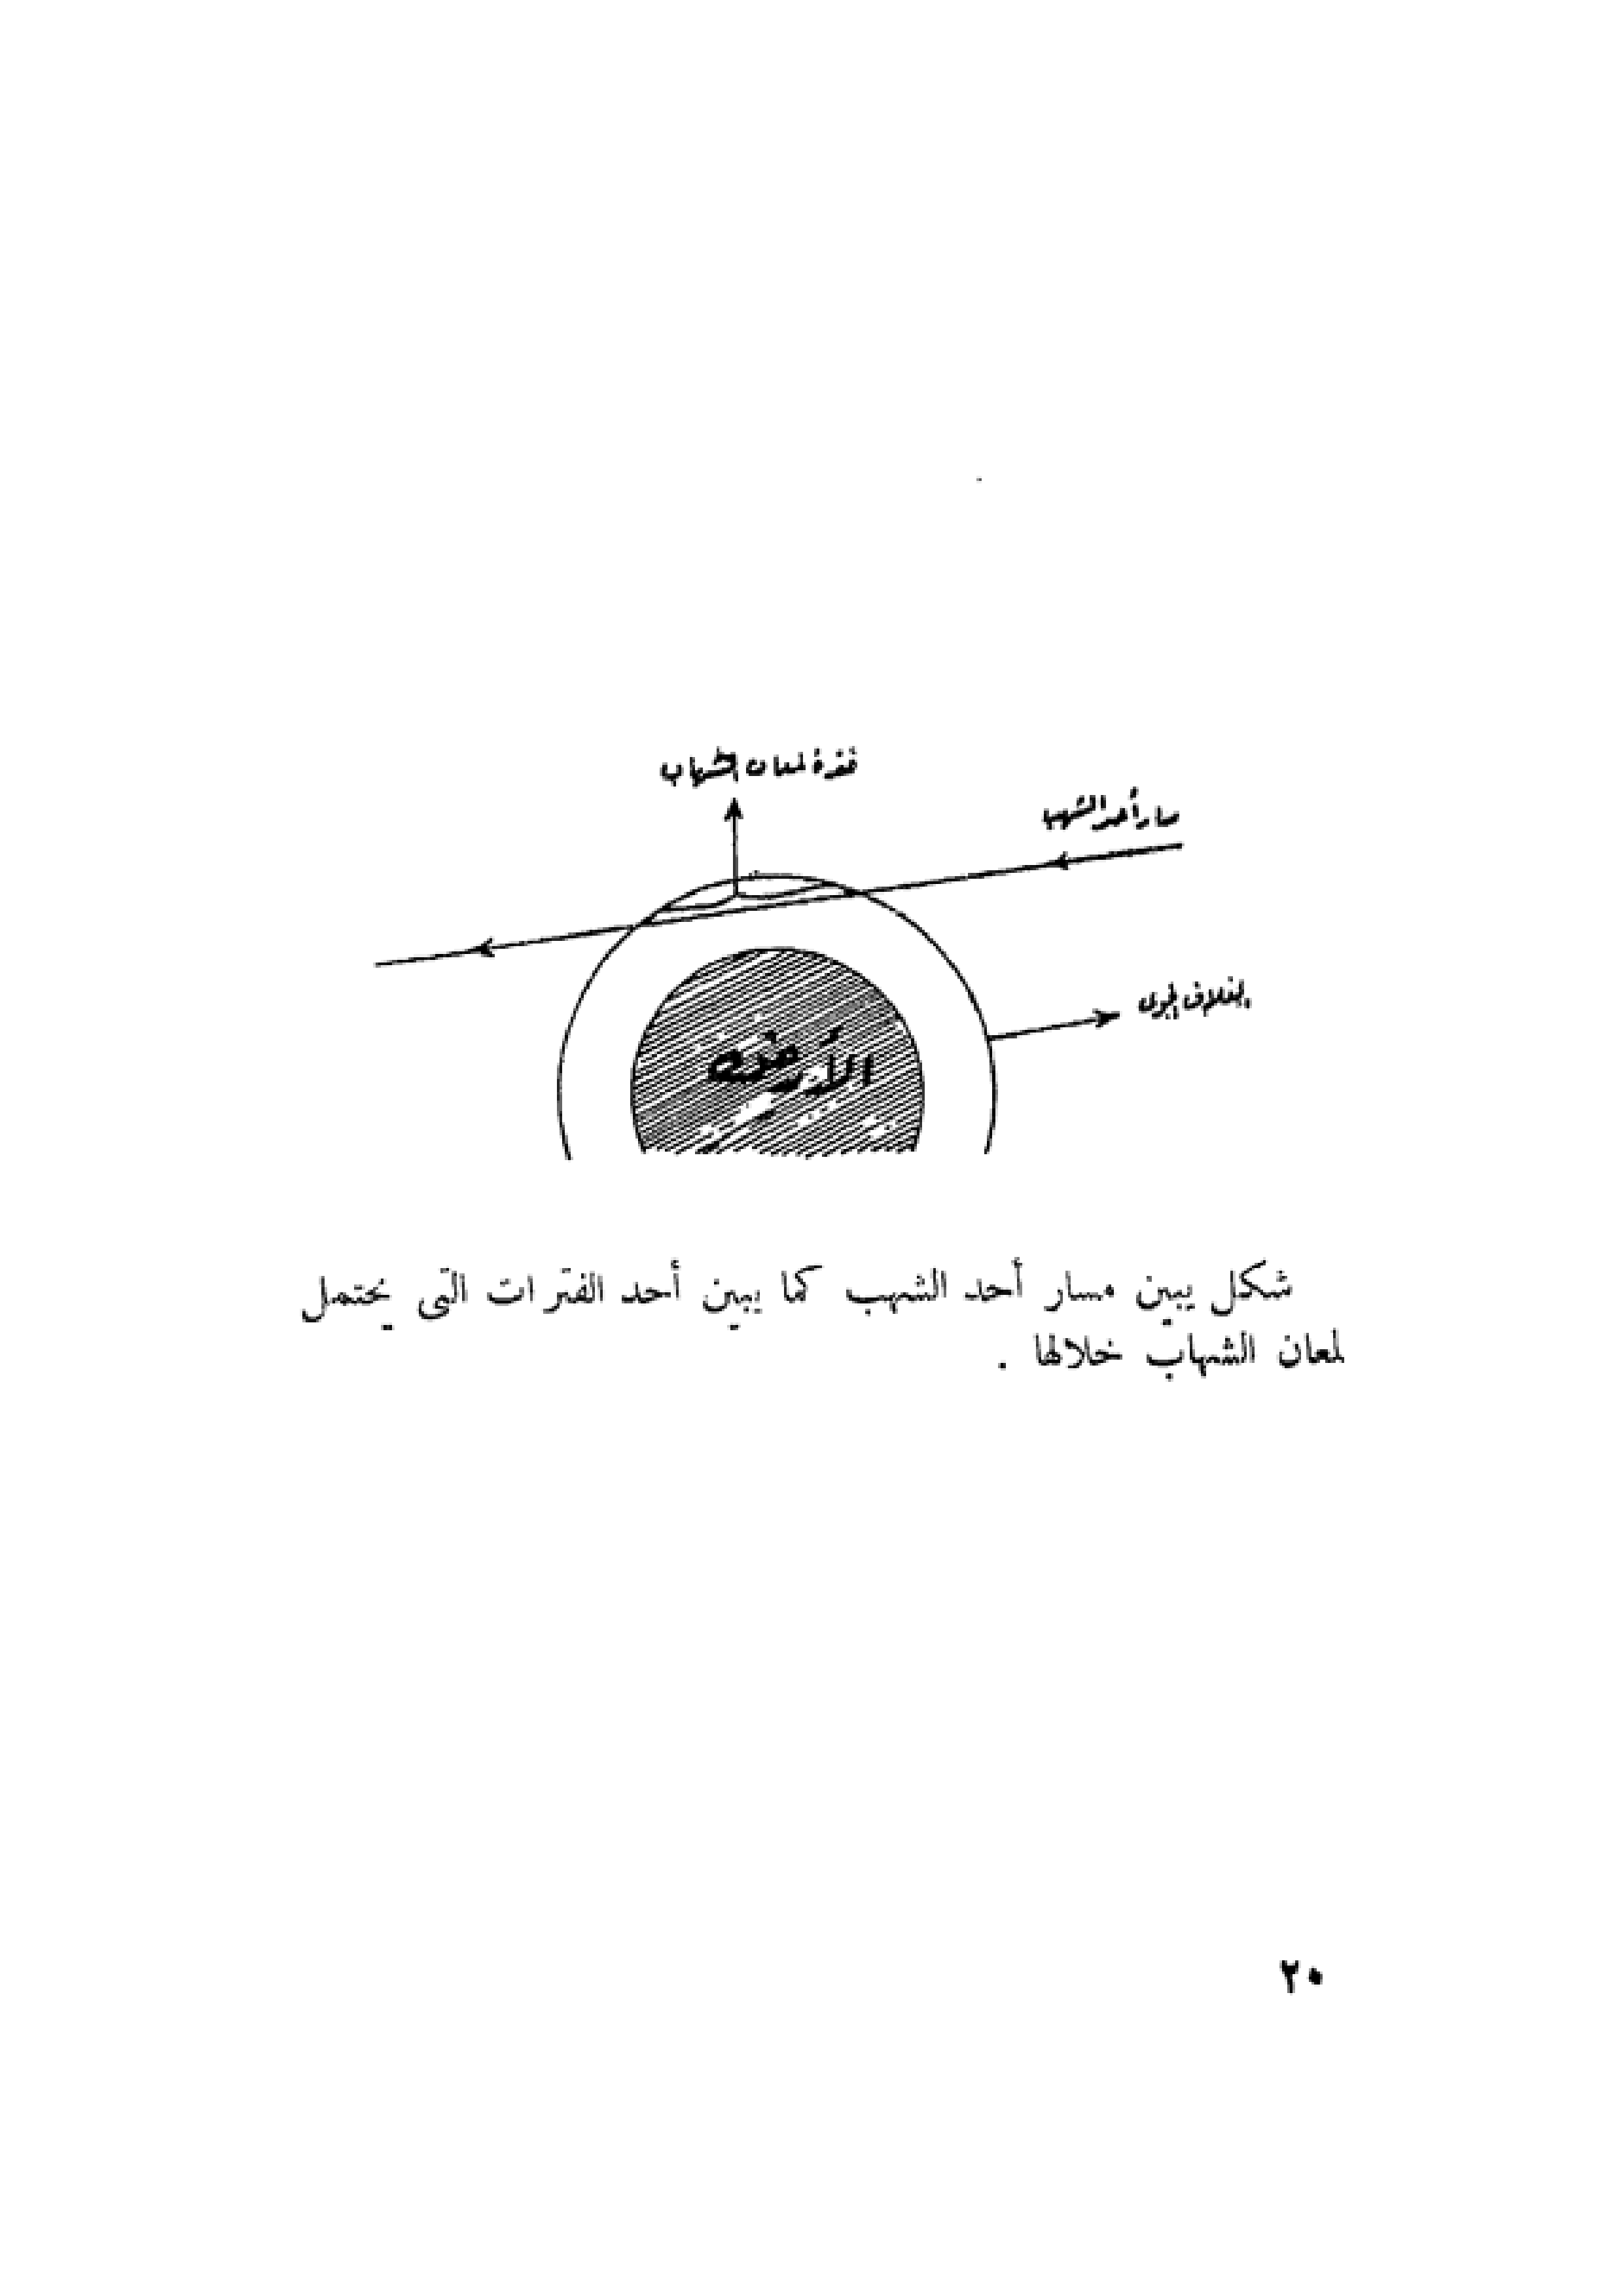 فترة لمعان الشهاب
مسار أحد الشهب
الغلاف الجوى
الأرض
شكل يبين مسار أحد الشهب كما يبين أحد الفترات التى يحتمل
لمعان الشهاب خلالها .
٢٠